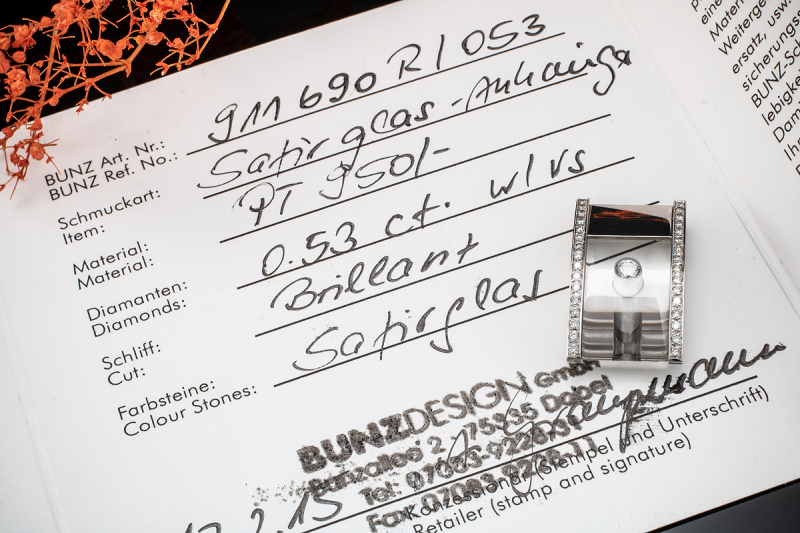 BUNZ Art. Nr.: 911 690 R/053
BUNZ Ref. No.:
Schmuckart: Satirglas-Anhänger
Item:
Material: PT 950/-
Material:
Diamanten: 0.53 ct. w/vs
Diamonds:
Schliff: Brillant
Cut:
Farbsteine: Satirglas
Colour Stones:
BUNZDESIGN GmbH
Bunzallee 2, 75335 Dobel
Tel: 07083-
Fax: 07083
Konzessionär (Stempel und Unterschrift)
Retailer (stamp and signature)
eine
Mater
Weiterge
ersatz, usw
sicherungs
BUNZ-Sch
lebigkei
Dam
Ihr